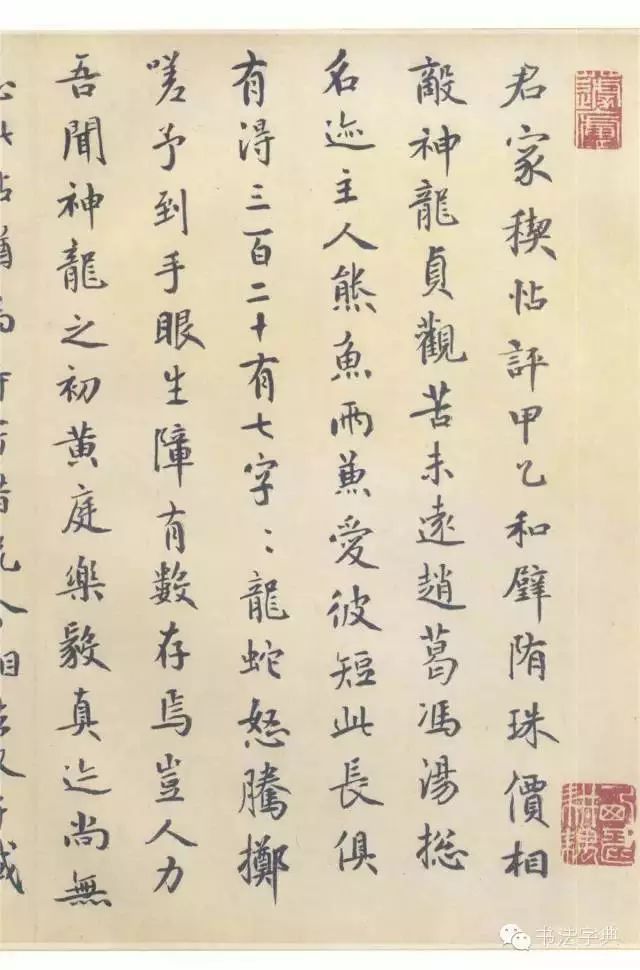 君家稧帖評甲乙和璧陏珠價相
敵神龍貞觀苦未遠趙葛馮湯揔
名迹主人熊魚兩兼愛彼短此長俱
有得三百二十有七字〻龍蛇怒騰擲
嗟予到手眼生障有數存焉豈人力
吾聞神龍之初黄庭樂毅真迹尚無
书法字典